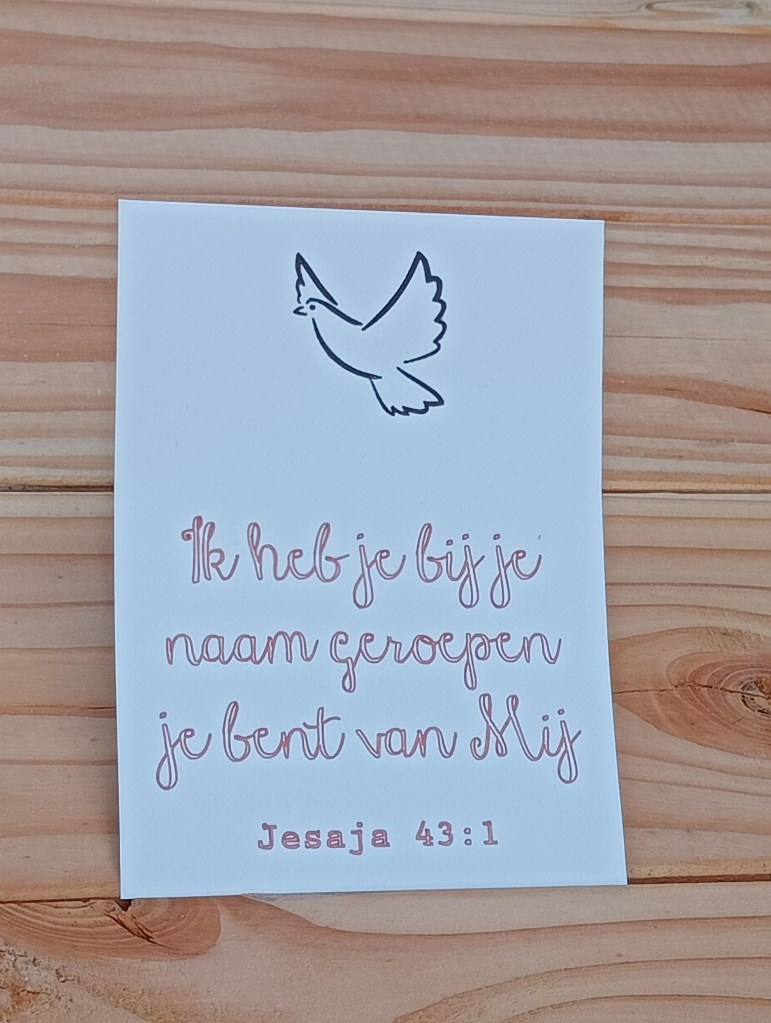 Ik heb je bij je
naam geroepen
je bent van Mij
Jesaja 43:1